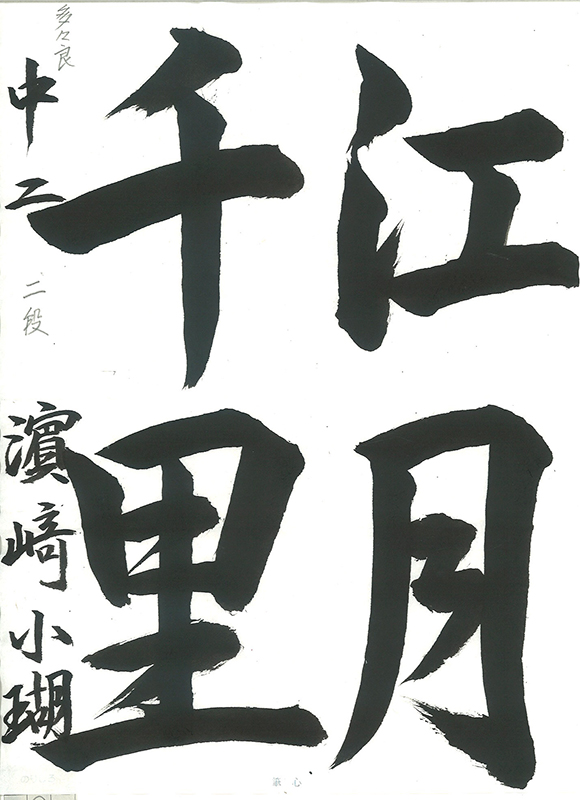 江月
千里
多々良
中二
二段
濵﨑小瑚